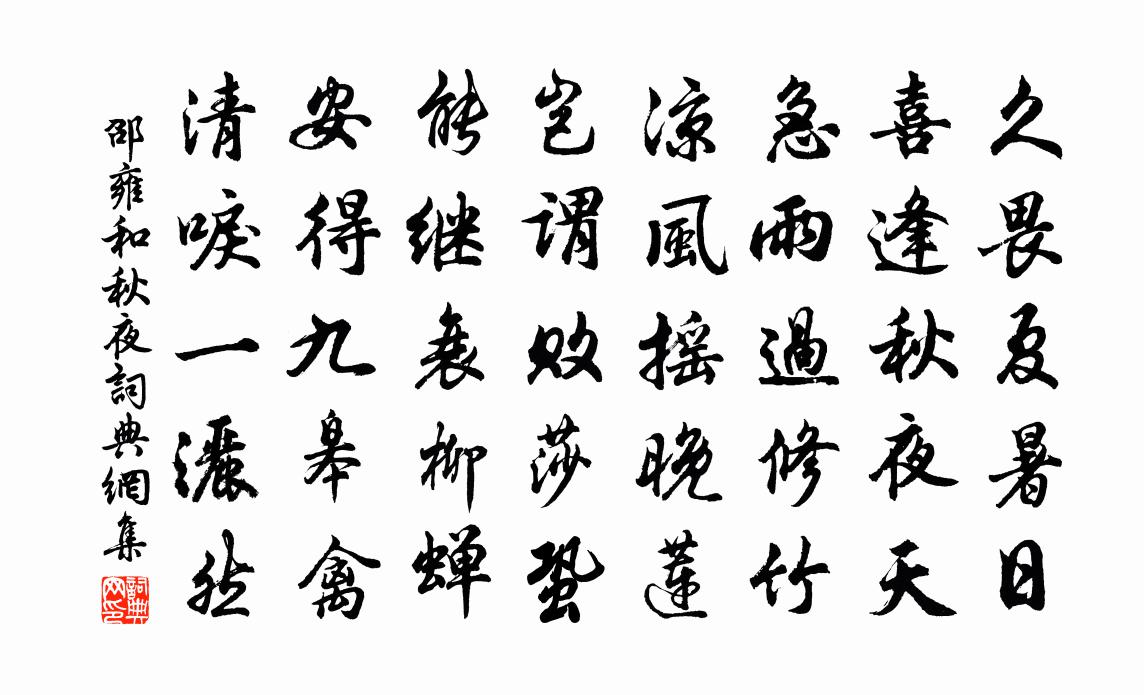 久畏夏暑日
喜逢秋夜天
急雨過修竹
涼風摇晚蓮
岂謂败莎蛩
能继衰柳蝉
安得九皋禽
清唳一灑然
邵雍和秋夜詞典網集
詞典网印